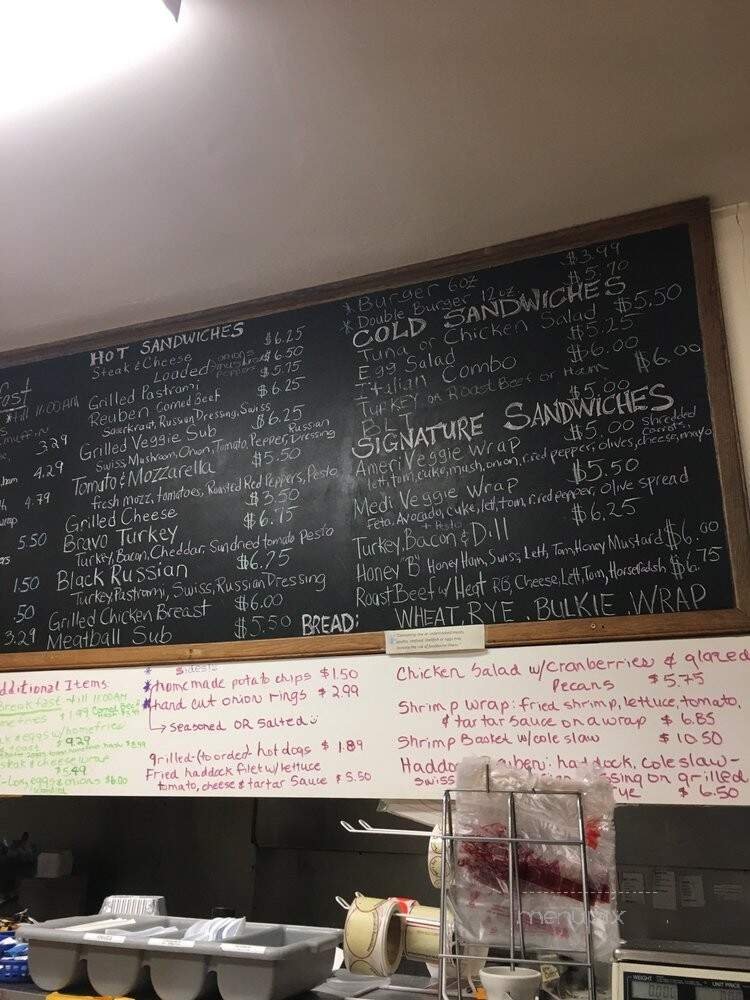 HOT SANDWICHES
Steak & Cheese $6.25
Loaded onions mushrooms peppers $6.50
Grilled Pastrami $5.75
Reuben Corned Beef $6.25
Sauerkraut, Russian Dressing, Swiss
Grilled Veggie Sub $6.25
Swiss, Mushroom, Onion, Tomato, Pepper, Russian Dressing
Tomato & Mozzarella $5.50
fresh mozz, tomatoes, Roasted Red Peppers, Pesto
Grilled Cheese $3.50
Bravo Turkey $6.75
Turkey, Bacon, Cheddar, Sundried tomato Pesto
Black Russian $6.75
Turkey, Pastrami, Swiss, Russian Dressing
Grilled Chicken Breast $6.00
Meatball Sub $5.50
till 11:00AM
3.29
4.29
4.79
5.50
1.50
.50
3.29
* Burger 6oz $3.99
* Double Burger 12oz $5.70
COLD SANDWICHES
Tuna or Chicken Salad $5.50
Egg Salad $5.25
Italian Combo $6.00
Turkey or Roast Beef or Ham $6.00
BLT $5.00
SIGNATURE SANDWICHES
Ameri Veggie Wrap $5.00 shredded carrots,
lett, tom, cuke, mush, onion, r.red pepper, olives, cheese, mayo
Medi Veggie Wrap $5.50
Feta, Avocado, cuke, lett, tom, r.red pepper, olive spread
Turkey, Bacon & Dill $6.25
Honey "B" Honey Ham, Swiss, Lett, Tom, Honey Mustard $6.00
Roast Beef w/ Heat RB, Cheese, Lett, Tom, Horseradish $6.75
BREAD: WHEAT, RYE, BULKIE, WRAP
dditional Items:
Breakfast till 11:00AM
$1.99
& eggs w/ home fries
$9.29
steak & cheese wrap
$5.49
eggs & onions $6.00
* sides:
* homemade potato chips $1.50
* hand cut onion rings $2.99
→ seasoned OR salted
grilled-(to order) hot dogs $1.89
Fried haddock filet w/ lettuce
tomato, cheese & tartar sauce $5.50
Chicken Salad w/cranberries & glazed
Pecans $5.75
Shrimp Wrap: fried shrimp, lettuce, tomato,
& tartar sauce on a wrap $6.85
Shrimp Basket w/cole slaw $10.50
Haddo uben: haddock, coleslaw-
swiss sing on grilled
rye $6.50
menupix
WEIGHT
UNIT PRICE